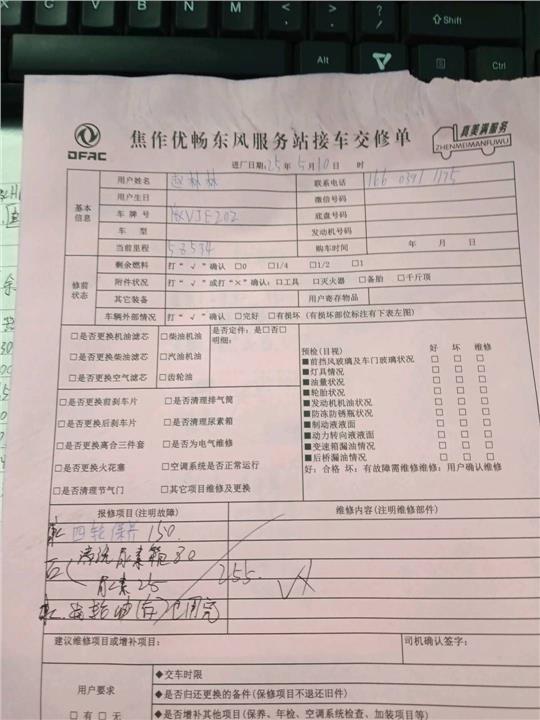 Shift
Alt
Ctrl
DFAC
焦作优畅东风服务站接车交修单
真美满服务
ZHENMEIMANFUWU
进厂日期:25年5月10日 时
基本信息
用户姓名 赵林林 联系电话 166 0391 1175
用户生日 微信号码
车牌号 VJE202 底盘号码
车 型 发动机号码
当前里程 58534 购车时间 年 月 日
修前状态
剩余燃料 打“√”确认 □0 □1/4 □1/2 □1
附件状况 打“√”或打“×”确认:□工具 □灭火器 □备胎 □千斤顶
其它装备 用户寄存物品
车辆外部情况 打“√”确认 □完好 □有损坏(有损坏部位标注有下表左图)
□是否更换机油滤芯 □柴油机油 是否定件:是□否□
明细:
□是否更换柴油滤芯 □汽油机油
□是否更换空气滤芯 □齿轮油
预检(目视) 好 坏 维修
■前挡风玻璃及车门玻璃状况 □ □ □
■灯具情况 □ □ □
■油量状况 □ □ □
■轮胎状况 □ □ □
■发动机机油状况 □ □ □
■防冻防锈瓶状况 □ □ □
■制动液液面 □ □ □
■动力转向液液面 □ □ □
■变速箱漏油情况 □ □ □
■后桥漏油情况 □ □ □
好:合格 坏:有故障需维修维修:用户确认维修
□是否更换前刹车片 □是否清理排气筒
□是否更换后刹车片 □是否清理尿素箱
□是否更换离合三件套 □是否为电气维修
□是否更换火花塞 □空调系统是否正常运行
□是否清理节气门 □其它项目维修及更换
报修项目(注明故障) 维修内容(注明维修部件)
四轮保养 150
清洗尿素箱 80
尿素 25
255.
建议维修项目或增补项目: 司机确认签字:
用户要求
□有 □无
◆交车时限
◆是否归还更换的备件(保修项目不退还旧件)
◆是否增补其他项目(保养、年检、空调系统检查、加装项目等)